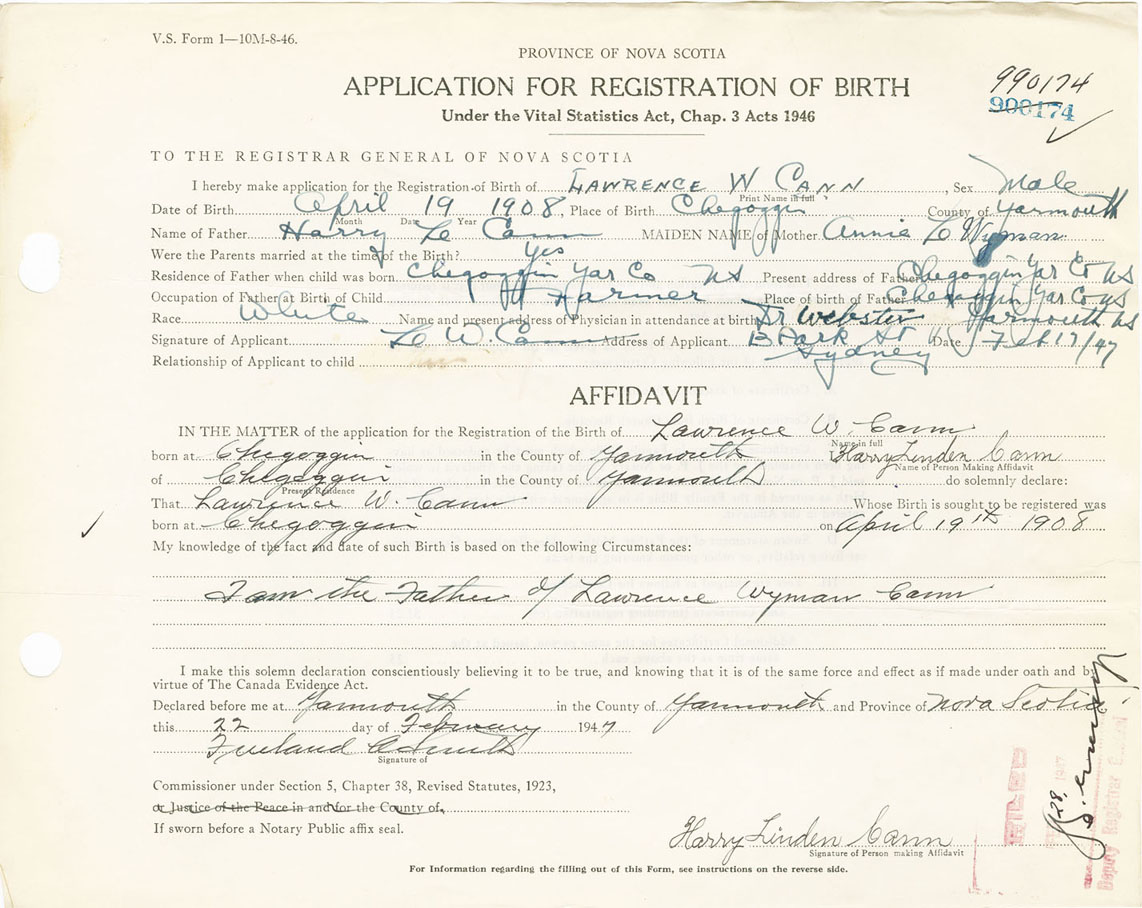 V.S. Form 1—10M-8-46.
PROVINCE OF NOVA SCOTIA
APPLICATION FOR REGISTRATION OF BIRTH
990174
900174
Under the Vital Statistics Act, Chap. 3 Acts 1946
TO THE REGISTRAR GENERAL OF NOVA SCOTIA
I hereby make application for the Registration of Birth of LAWRENCE W CANN, Sex Male
Print Name in full
Date of Birth April 19 1908, Place of Birth Chegoggin County of Yarmouth
Month Date Year
Name of Father Harry L Cann MAIDEN NAME of Mother Annie L Wyman
Were the Parents married at the time of the Birth? Yes
Residence of Father when child was born Chegoggin Yar Co NS Present address of Father Chegoggin Yar Co NS
Occupation of Father at Birth of Child Farmer Place of birth of Father Chegoggin Yar Co NS
Race White Name and present address of Physician in attendance at birth Dr Webster Yarmouth NS
Signature of Applicant L W. Cann Address of Applicant Park St Date Feb 17/47
Sydney
Relationship of Applicant to child
AFFIDAVIT
IN THE MATTER of the application for the Registration of the Birth of Lawrence W. Cann
Name in full
born at Chegoggin in the County of Yarmouth Harry Linden Cann
Name of Person Making Affidavit
of Chegoggin in the County of Yarmouth do solemnly declare:
Present Residence
That Lawrence W. Cann Whose Birth is sought to be registered was
born at Chegoggin on April 19th 1908
My knowledge of the fact and date of such Birth is based on the following Circumstances:
I am the Father of Lawrence Wyman Cann
I make this solemn declaration conscientiously believing it to be true, and knowing that it is of the same force and effect as if made under oath and by
virtue of The Canada Evidence Act.
Declared before me at Yarmouth in the County of Yarmouth and Province of Nova Scotia
this 22 day of February 1947
Signature of
Commissioner under Section 5, Chapter 38, Revised Statutes, 1923,
or Justice of the Peace in and for the County of
If sworn before a Notary Public affix seal.
Harry Linden Cann
Signature of Person making Affidavit
For Information regarding the filling out of this Form, see instructions on the reverse side.
FILED
28, 1947
Deputy Registrar General